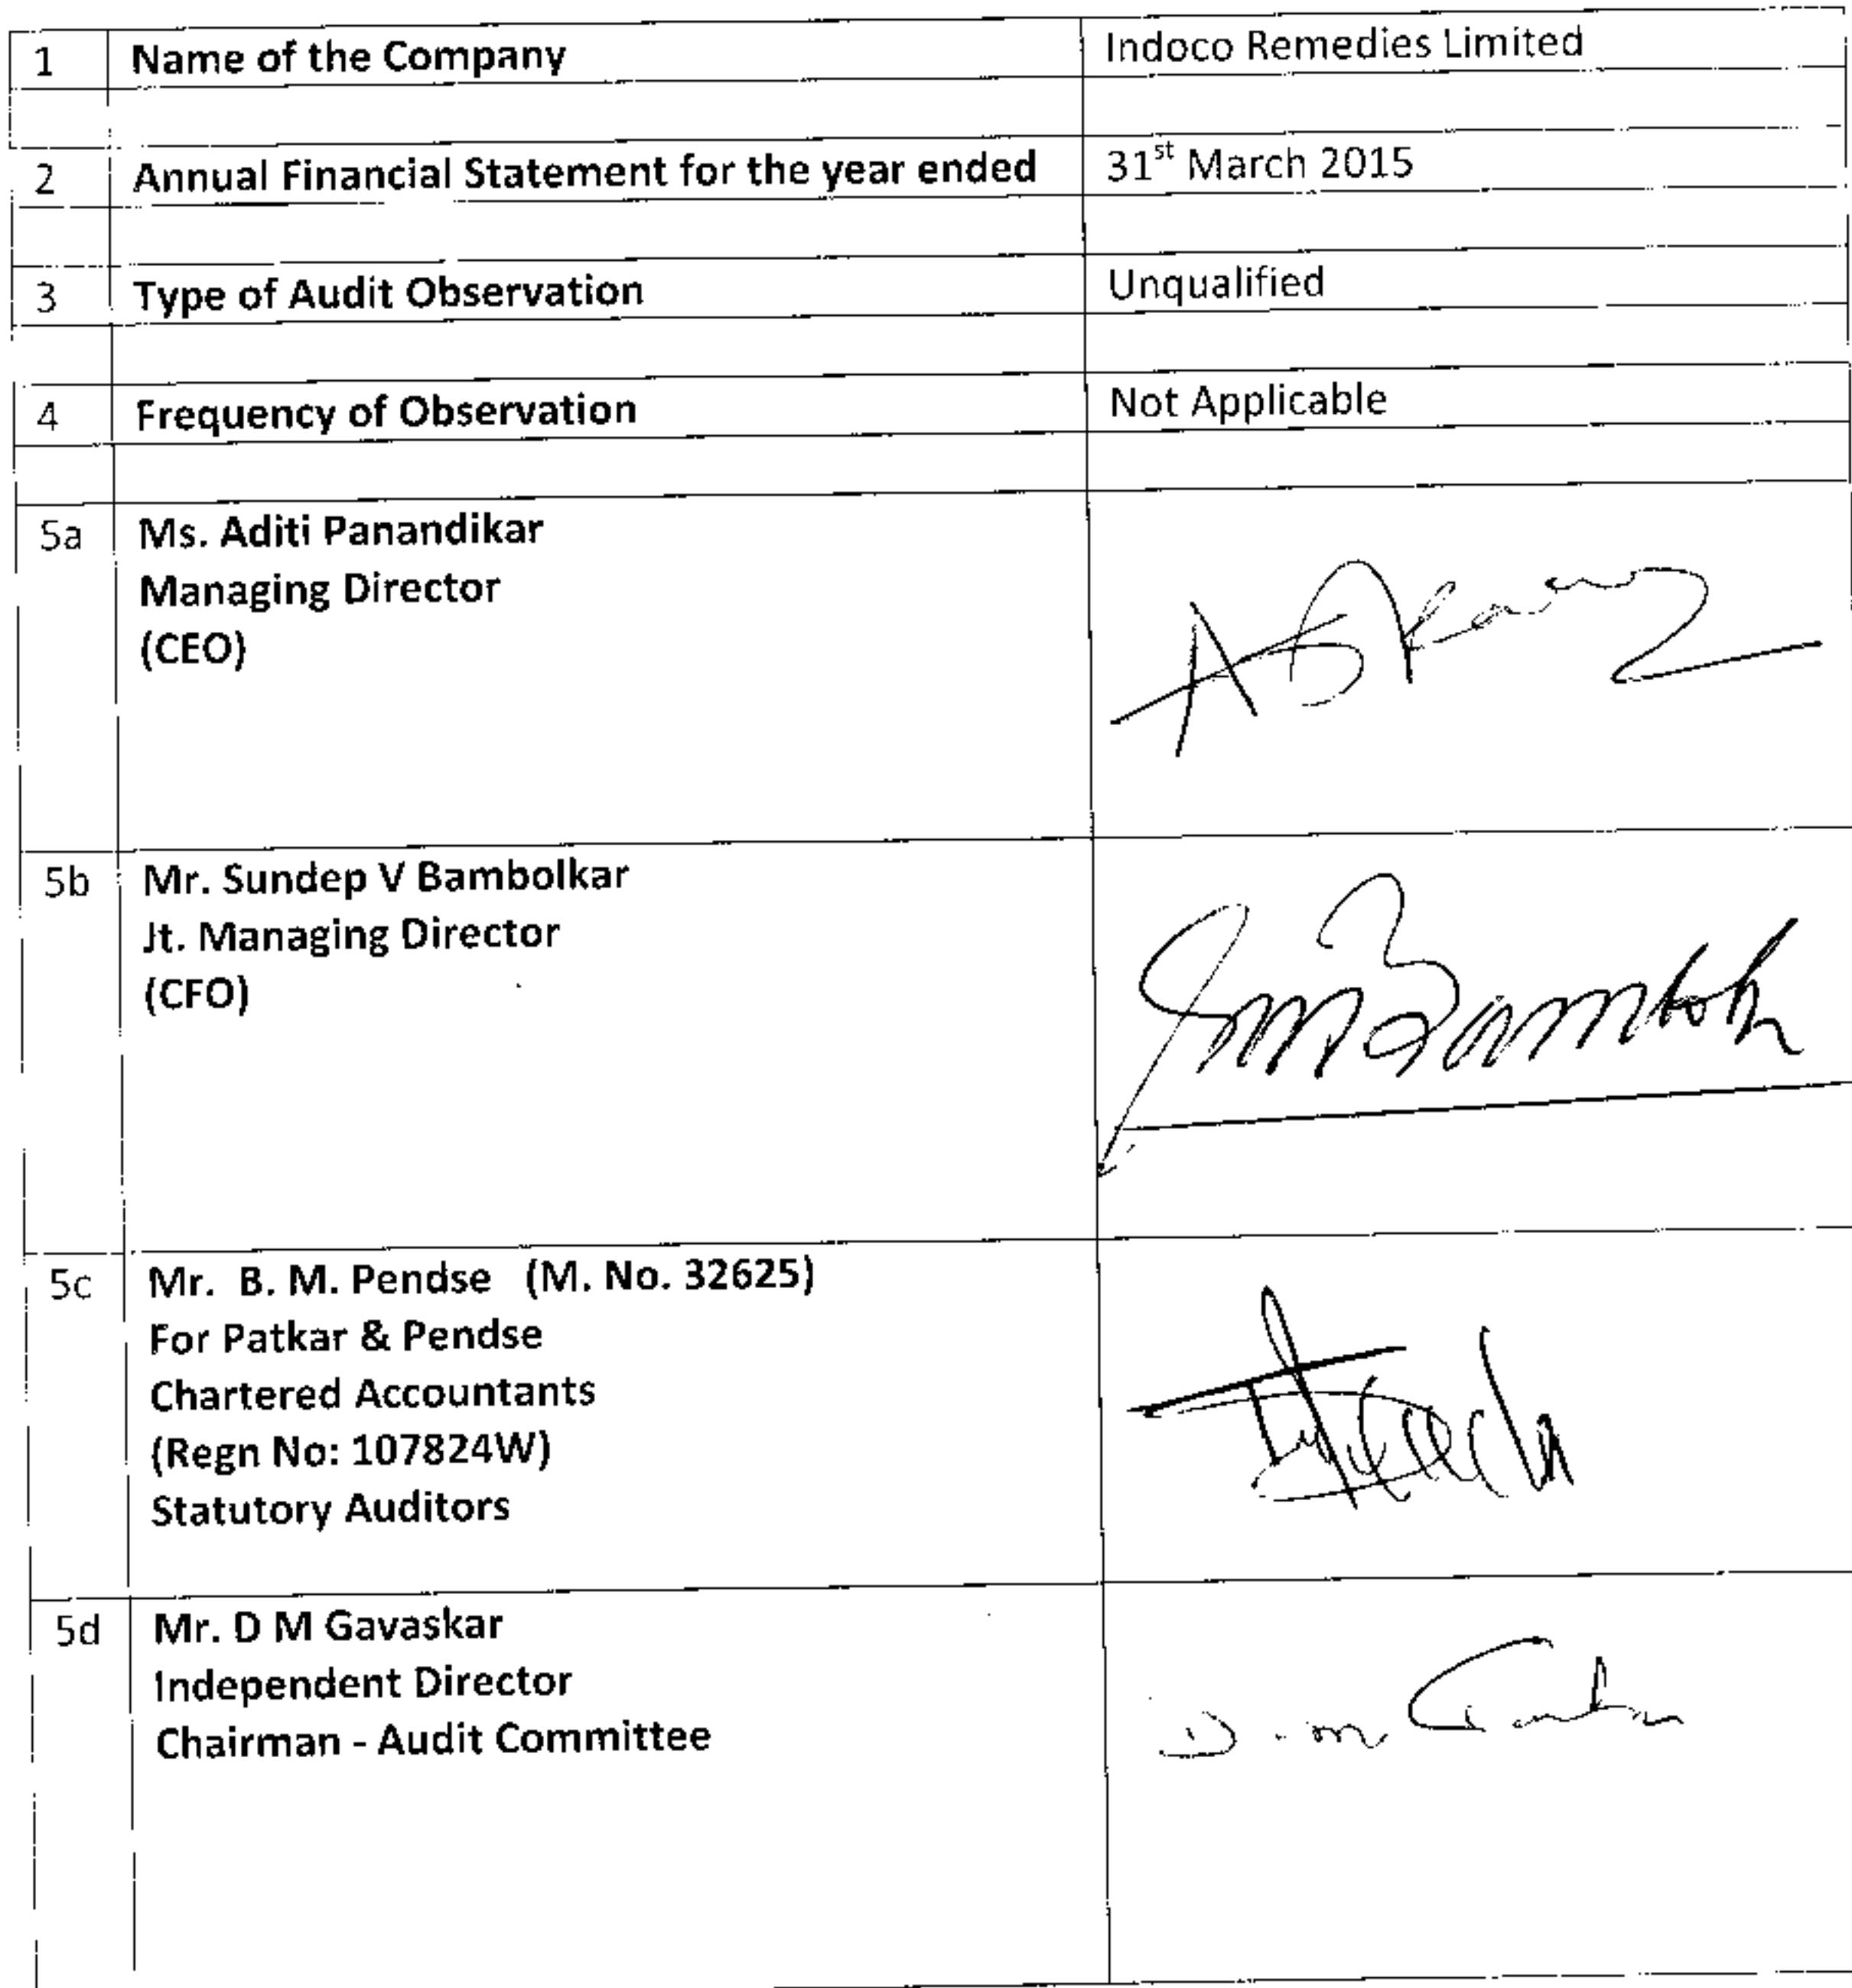 1 Name of the Company Indoco Remedies Limited
2 Annual Financial Statement for the year ended 31st March 2015
3 Type of Audit Observation Unqualified
4 Frequency of Observation Not Applicable
5a Ms. Aditi Panandikar
Managing Director
(CEO)
5b Mr. Sundep V Bambolkar
Jt. Managing Director
(CFO)
5c Mr. B. M. Pendse (M. No. 32625)
For Patkar & Pendse
Chartered Accountants
(Regn No: 107824W)
Statutory Auditors
5d Mr. D M Gavaskar
Independent Director
Chairman - Audit Committee